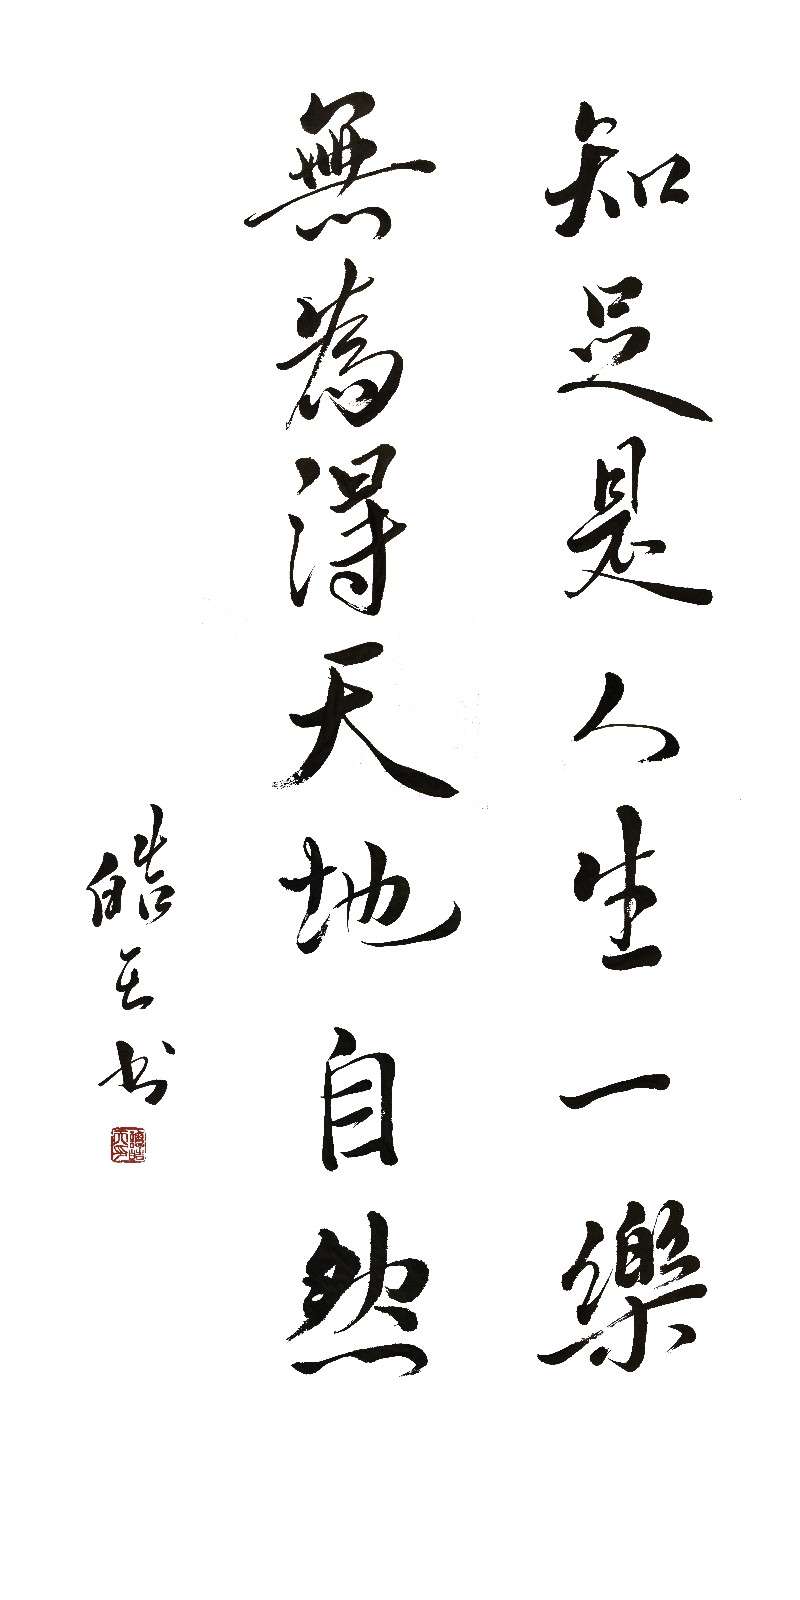 知足是人生一樂
無為得天地自然
皓天书